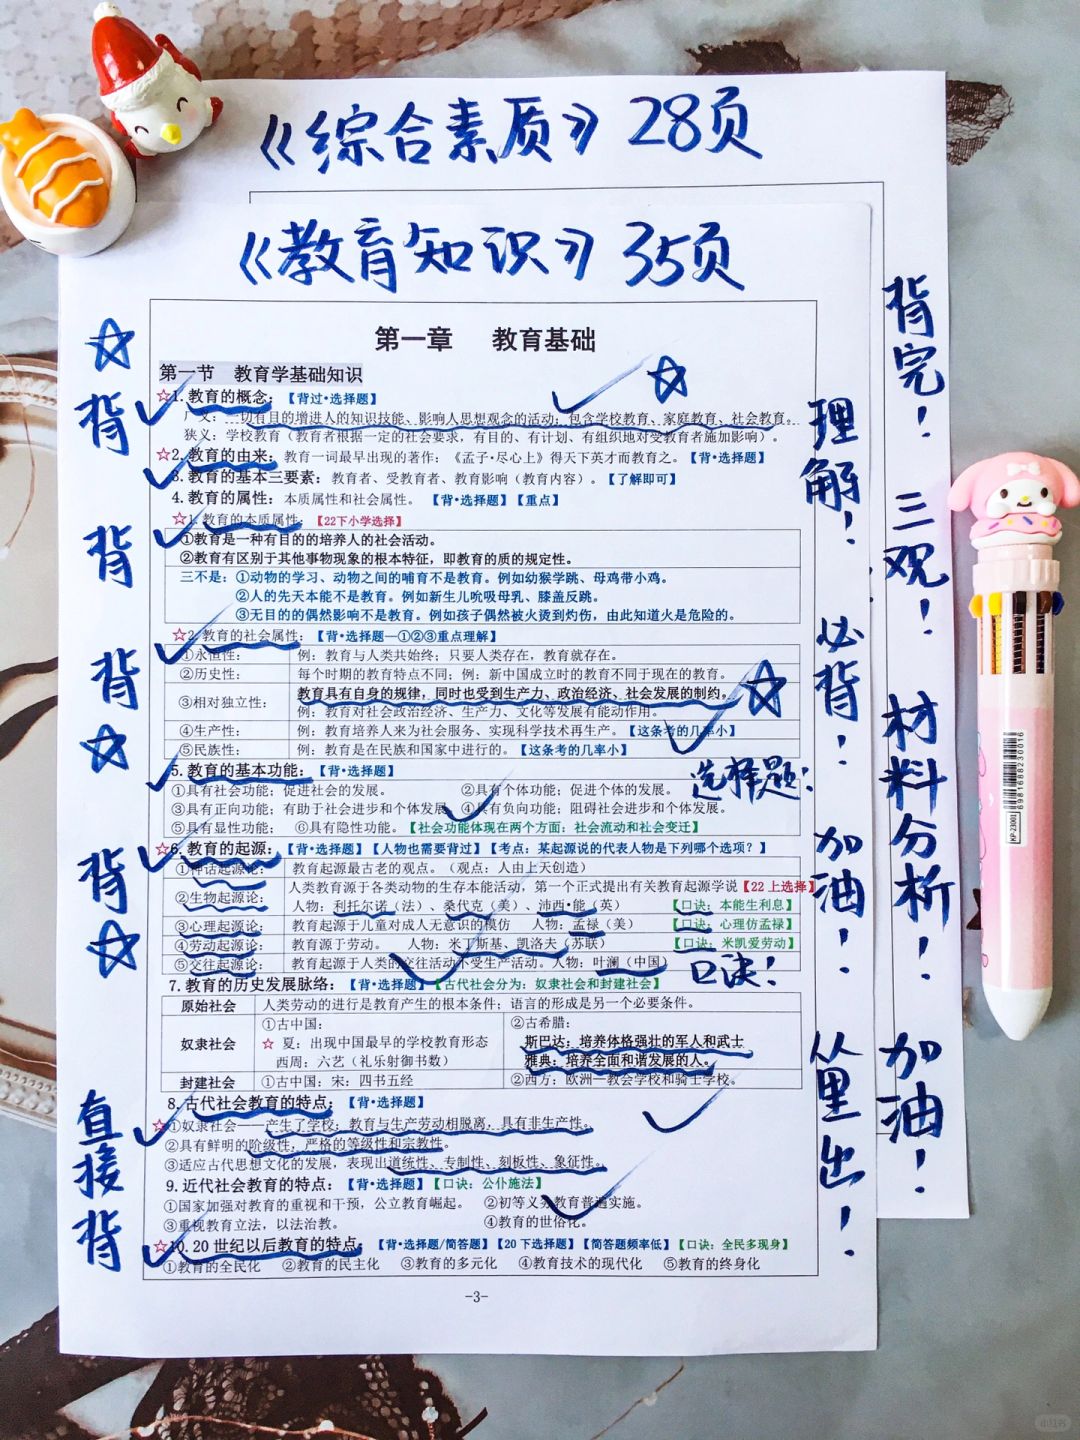 《综合素质》28页
《教育知识》35页
第一章 教育基础
第一节 教育学基础知识
☆1.教育的概念：【背过•选择题】
广义：一切有目的增进人的知识技能、影响人思想观念的活动；包含学校教育、家庭教育、社会教育。
狭义：学校教育（教育者根据一定的社会要求，有目的、有计划、有组织地对受教育者施加影响）。
☆2.教育的由来：教育一词最早出现的著作：《孟子·尽心上》得天下英才而教育之。【背•选择题】
3.教育的基本三要素：教育者、受教育者、教育影响（教育内容）。【了解即可】
4.教育的属性：本质属性和社会属性。【背•选择题】【重点】
☆1.教育的本质属性：【22下小学选择】
①教育是一种有目的的培养人的社会活动。
②教育有区别于其他事物现象的根本特征，即教育的质的规定性。
三不是：①动物的学习、动物之间的哺育不是教育。例如幼猴学跳、母鸡带小鸡。
②人的先天本能不是教育。例如新生儿吮吸母乳、膝盖反跳。
③无目的的偶然影响不是教育。例如孩子偶然被火烫到灼伤，由此知道火是危险的。
☆2.教育的社会属性：【背•选择题—①②③重点理解】
①永恒性： 例：教育与人类共始终；只要人类存在，教育就存在。
②历史性： 每个时期的教育特点不同；例：新中国成立时的教育不同于现在的教育。
③相对独立性： 教育具有自身的规律，同时也受到生产力、政治经济、社会发展的制约。
例：教育对社会政治经济、生产力、文化等发展有能动作用。
④生产性： 例：教育培养人来为社会服务、实现科学技术再生产。【这条考的几率小】
⑤民族性： 例：教育是在民族和国家中进行的。【这条考的几率小】
5.教育的基本功能：【背•选择题】
①具有社会功能；促进社会的发展。 ②具有个体功能；促进个体的发展。
③具有正向功能；有助于社会进步和个体发展 ④具有负向功能；阻碍社会进步和个体发展。
⑤具有显性功能； ⑥具有隐性功能。【社会功能体现在两个方面：社会流动和社会变迁】
☆6.教育的起源：【背•选择题】【人物也需要背过】【考点：某起源说的代表人物是下列哪个选项？】
①神话起源论： 教育起源最古老的观点。（观点：人由上天创造）
②生物起源论： 人类教育源于各类动物的生存本能活动，第一个正式提出有关教育起源学说【22上选择】
人物：利托尔诺（法）、桑代克（美）、沛西•能（英） 【口诀：本能生利息】
③心理起源论： 教育起源于儿童对成人无意识的模仿 人物：孟禄（美） 【口诀：心理仿孟禄】
④劳动起源论： 教育源于劳动。 人物：米丁斯基、凯洛夫（苏联） 【口诀：米凯爱劳动】
⑤交往起源论： 教育起源于人类的交往活动不受生产活动。人物：叶澜（中国）
7.教育的历史发展脉络：【背•选择题】【古代社会分为：奴隶社会和封建社会】
原始社会 人类劳动的进行是教育产生的根本条件；语言的形成是另一个必要条件。
奴隶社会 ①古中国： ②古希腊：
☆ 夏：出现中国最早的学校教育形态 斯巴达：培养体格强壮的军人和武士
西周：六艺（礼乐射御书数） 雅典：培养全面和谐发展的人。
封建社会 ①古中国：宋：四书五经 ②西方：欧洲—教会学校和骑士学校。
8.古代社会教育的特点：【背•选择题】
☆①奴隶社会——产生了学校；教育与生产劳动相脱离，具有非生产性。
②具有鲜明的阶级性，严格的等级性和宗教性。
③适应古代思想文化的发展，表现出道统性、专制性、刻板性、象征性。
9.近代社会教育的特点：【背•选择题】【口诀：公仆施法】
①国家加强对教育的重视和干预，公立教育崛起。 ②初等义务教育普遍实施。
③重视教育立法，以法治教。 ④教育的世俗化。
☆10.20世纪以后教育的特点：【背•选择题/简答题】【20下选择题】【简答题频率低】【口诀：全民多现身】
①教育的全民化 ②教育的民主化 ③教育的多元化 ④教育技术的现代化 ⑤教育的终身化
-3-
背
背
背
背
直接背
选择题：
口诀！
理解！必背！加油！从里出！
背完！三观！材料分析！加油！
6981688230016
KP-23001
小红书